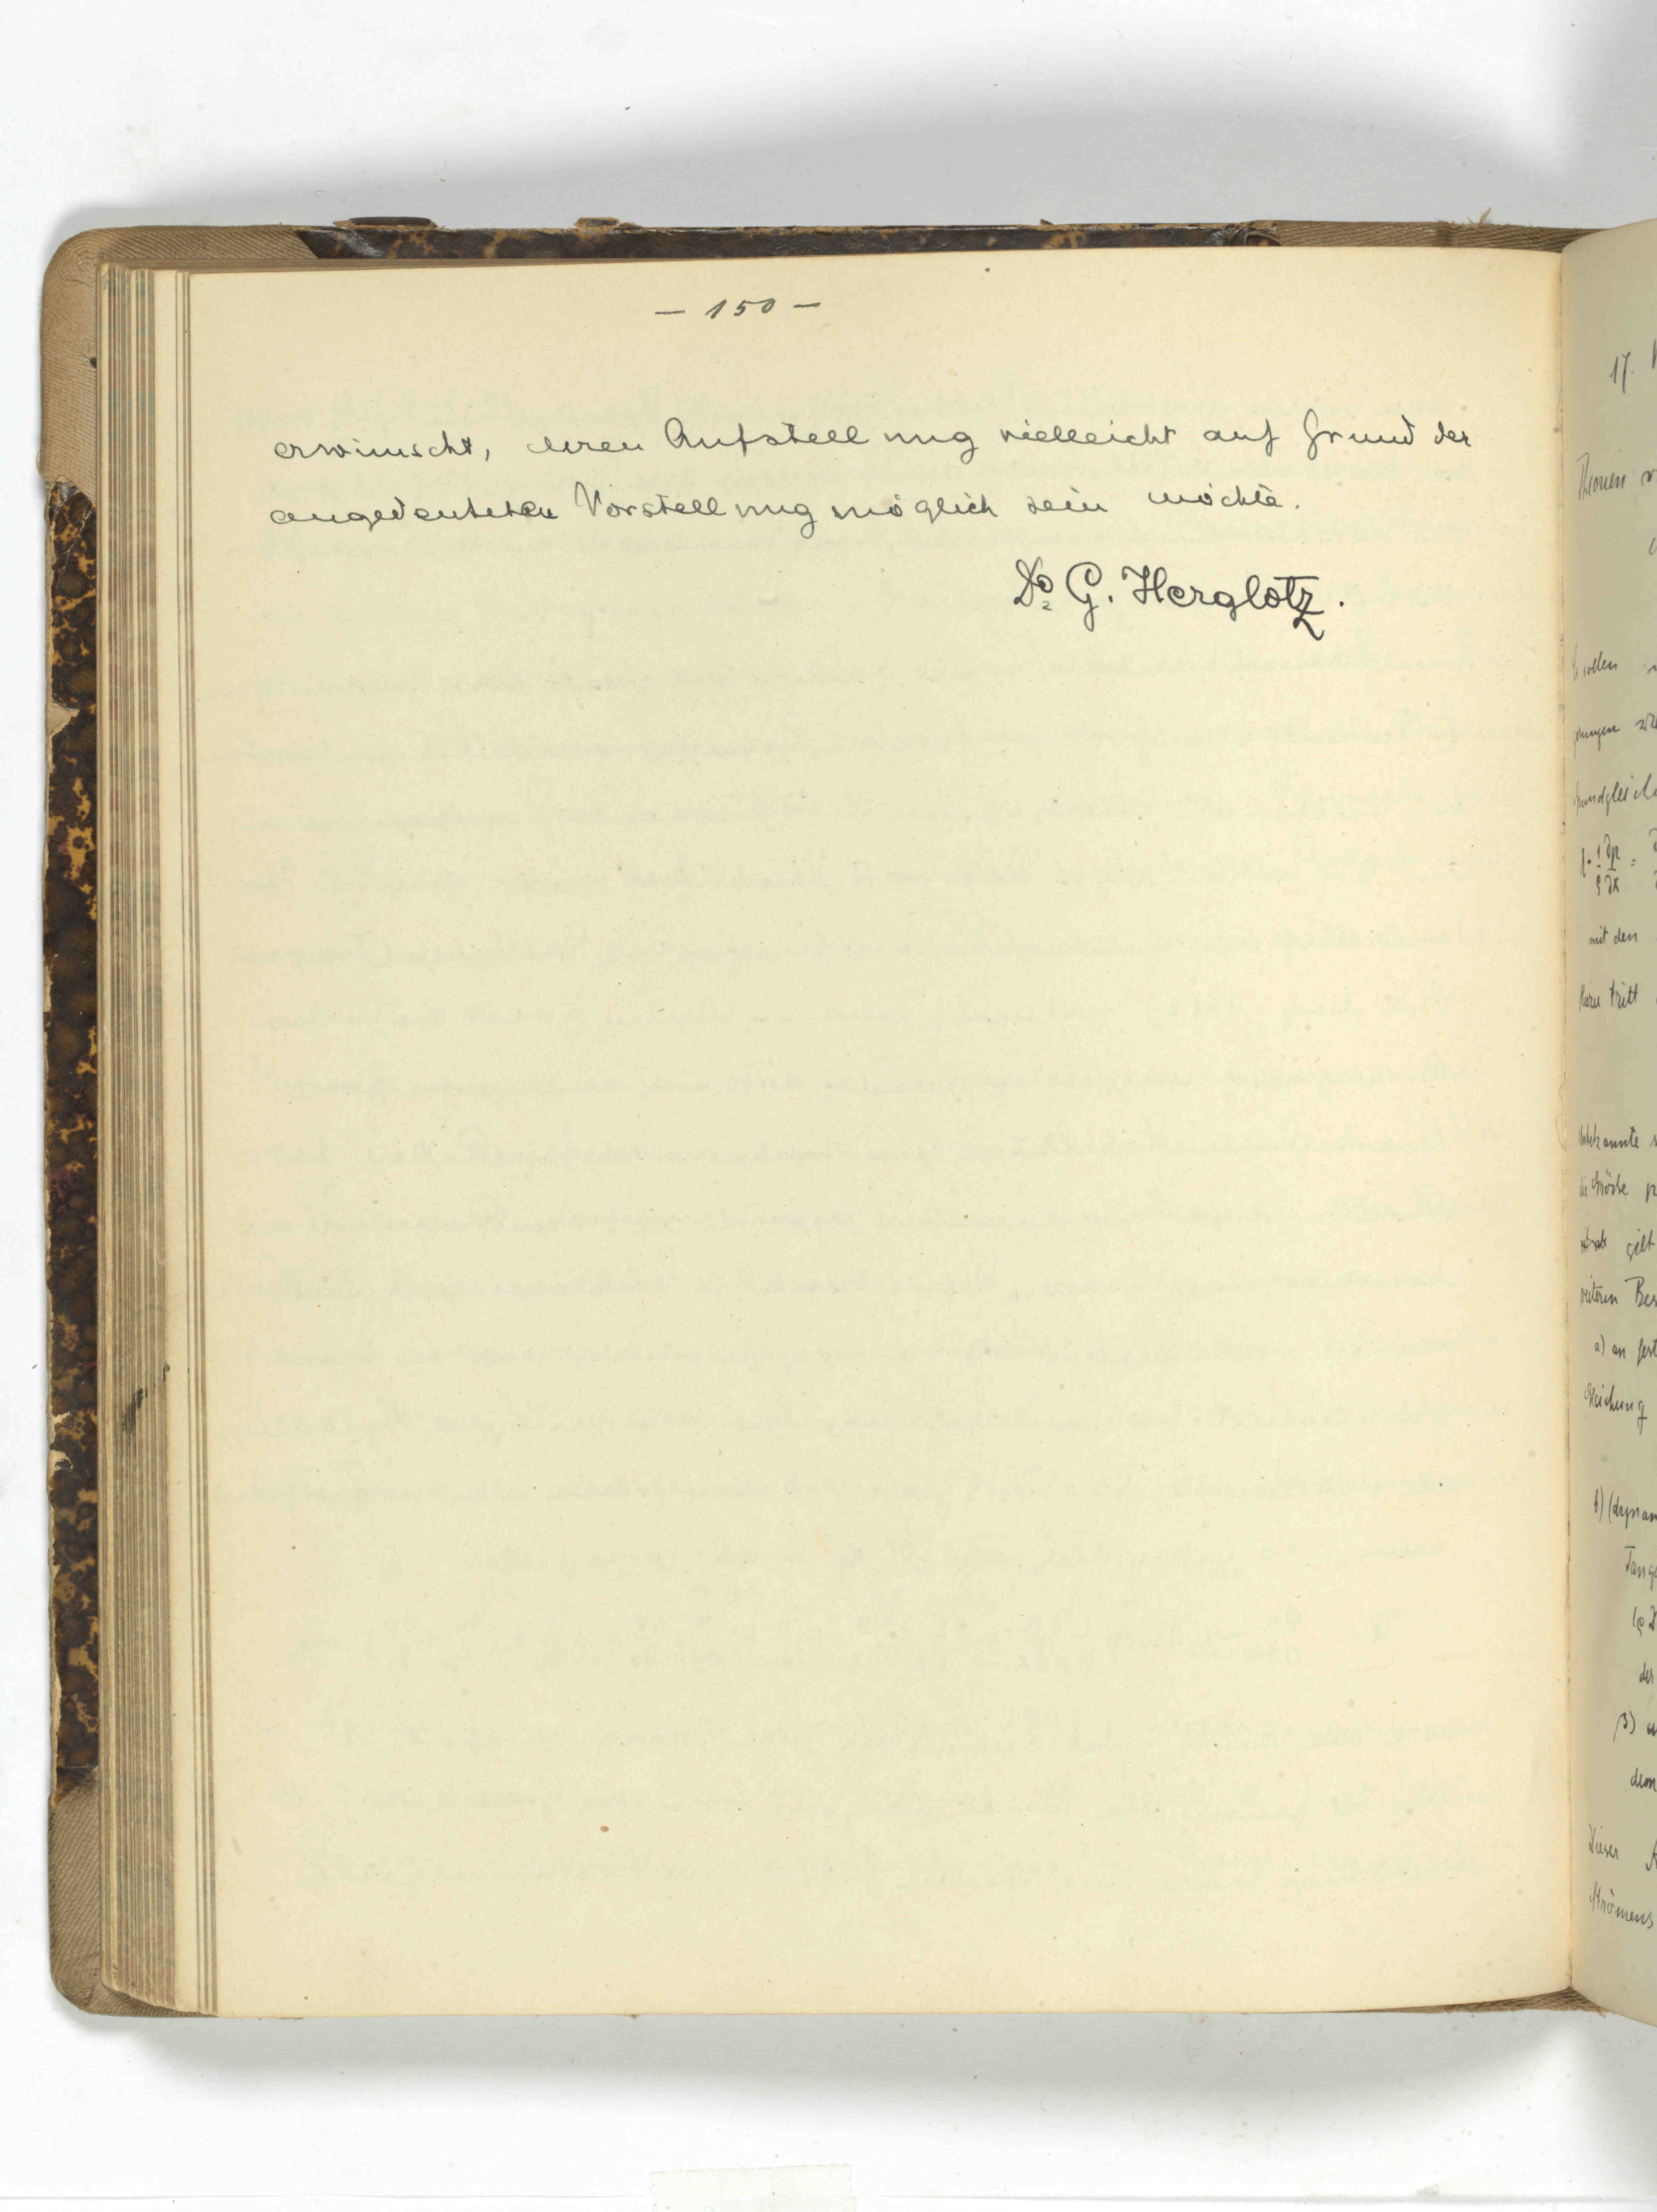 – 150 –
erwünscht, deren Aufstellung vielleicht auf Grund der
angedeuteten Vorstellung möglich sein möchte.
Dr G. Herglotz.
17.
Theorien
sollen
Grundgleich
mit den
Hierzu tritt
Unbekannte
die Größe p
gilt
weiteren
a) an fest
Gleichung
b) (dynam
Tang
der
β)
dem
Dieser
Strömens